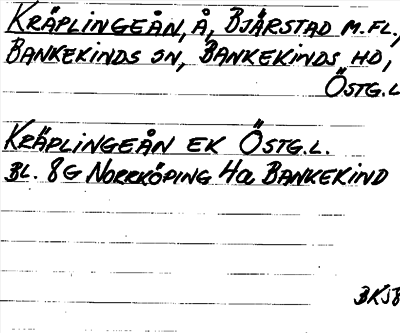 KRÄPLINGEÅN, Å, BJÄRSTAD M.FL.,
BANKEKINDS SN, BANKEKINDS HD,
ÖSTG.L
KRÄPLINGEÅN EK ÖSTG.L.
BL. 8G NORRKÖPING 4a BANKEKIND